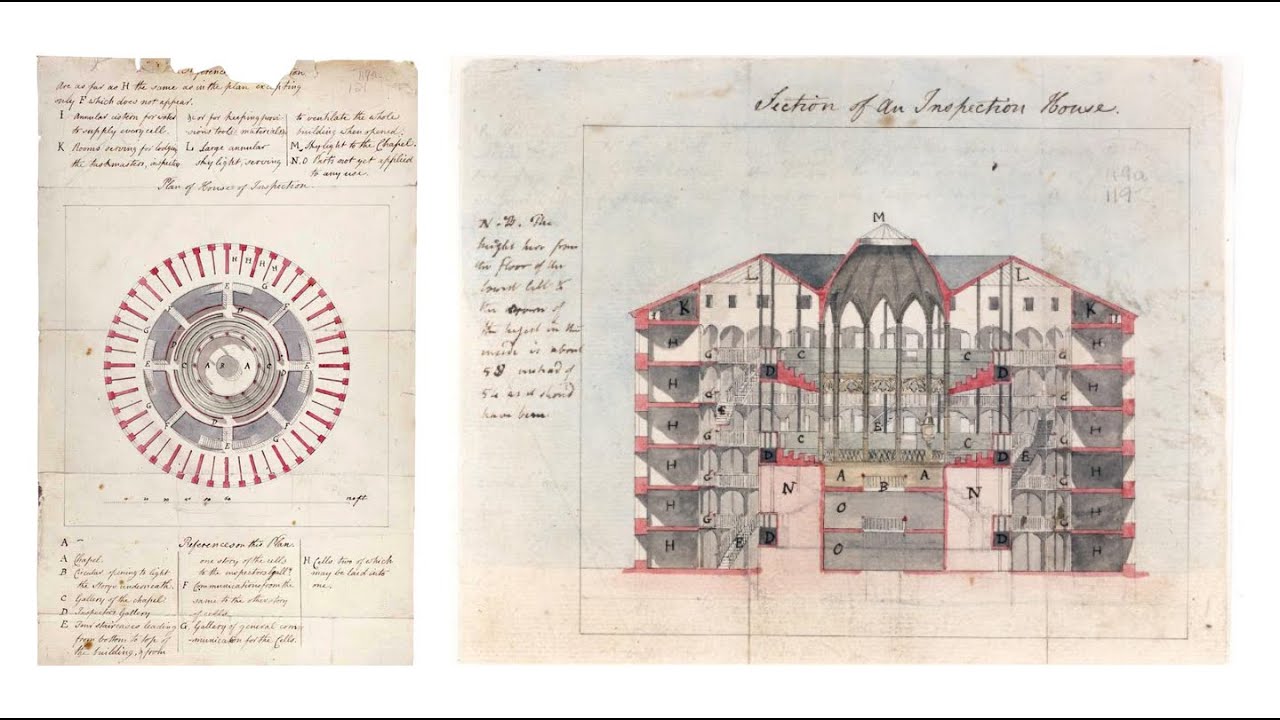 are as far as H the same as in the plan excepting
only F which does not appear.
I Annular cistern for water
to supply every cell.
K Rooms serving for lodging
the taskmasters, inspec
ors for keeping provi
sions tools materials
L Large annular
sky light, serving
to ventilate the whole
building when opened.
M Skylight to the Chapel.
N.O Parts not yet applied
to any use.
Plan of Houses of Inspection.
H H H H
G
E
A B A
C
D
A
References on this Plan.
A Chapel.
B Circular opening to light
the Storys underneath.
C Gallery of the chapel
D Inspectors Gallery
E Four staircases leading
from bottom to top of
the building, & from
one story of the cells
to the inspectors gally
F Communications from the
same to the other story
of cells.
G Gallery of general com
munication for the Cells.
H Cells two of which
may be laid into
one.
Section of an Inspection House.
119a
119
N.B. The
height here from
the floor of the
lowest Cell to
the crown of
the highest in the
inside is about
58 instead of
54 as it should
have been
M
L L
K K
H G C C G H
D D
H G G H
E B
H G C C G H
D D E
H A B A H
N N
H G O G H
D D
H E O H